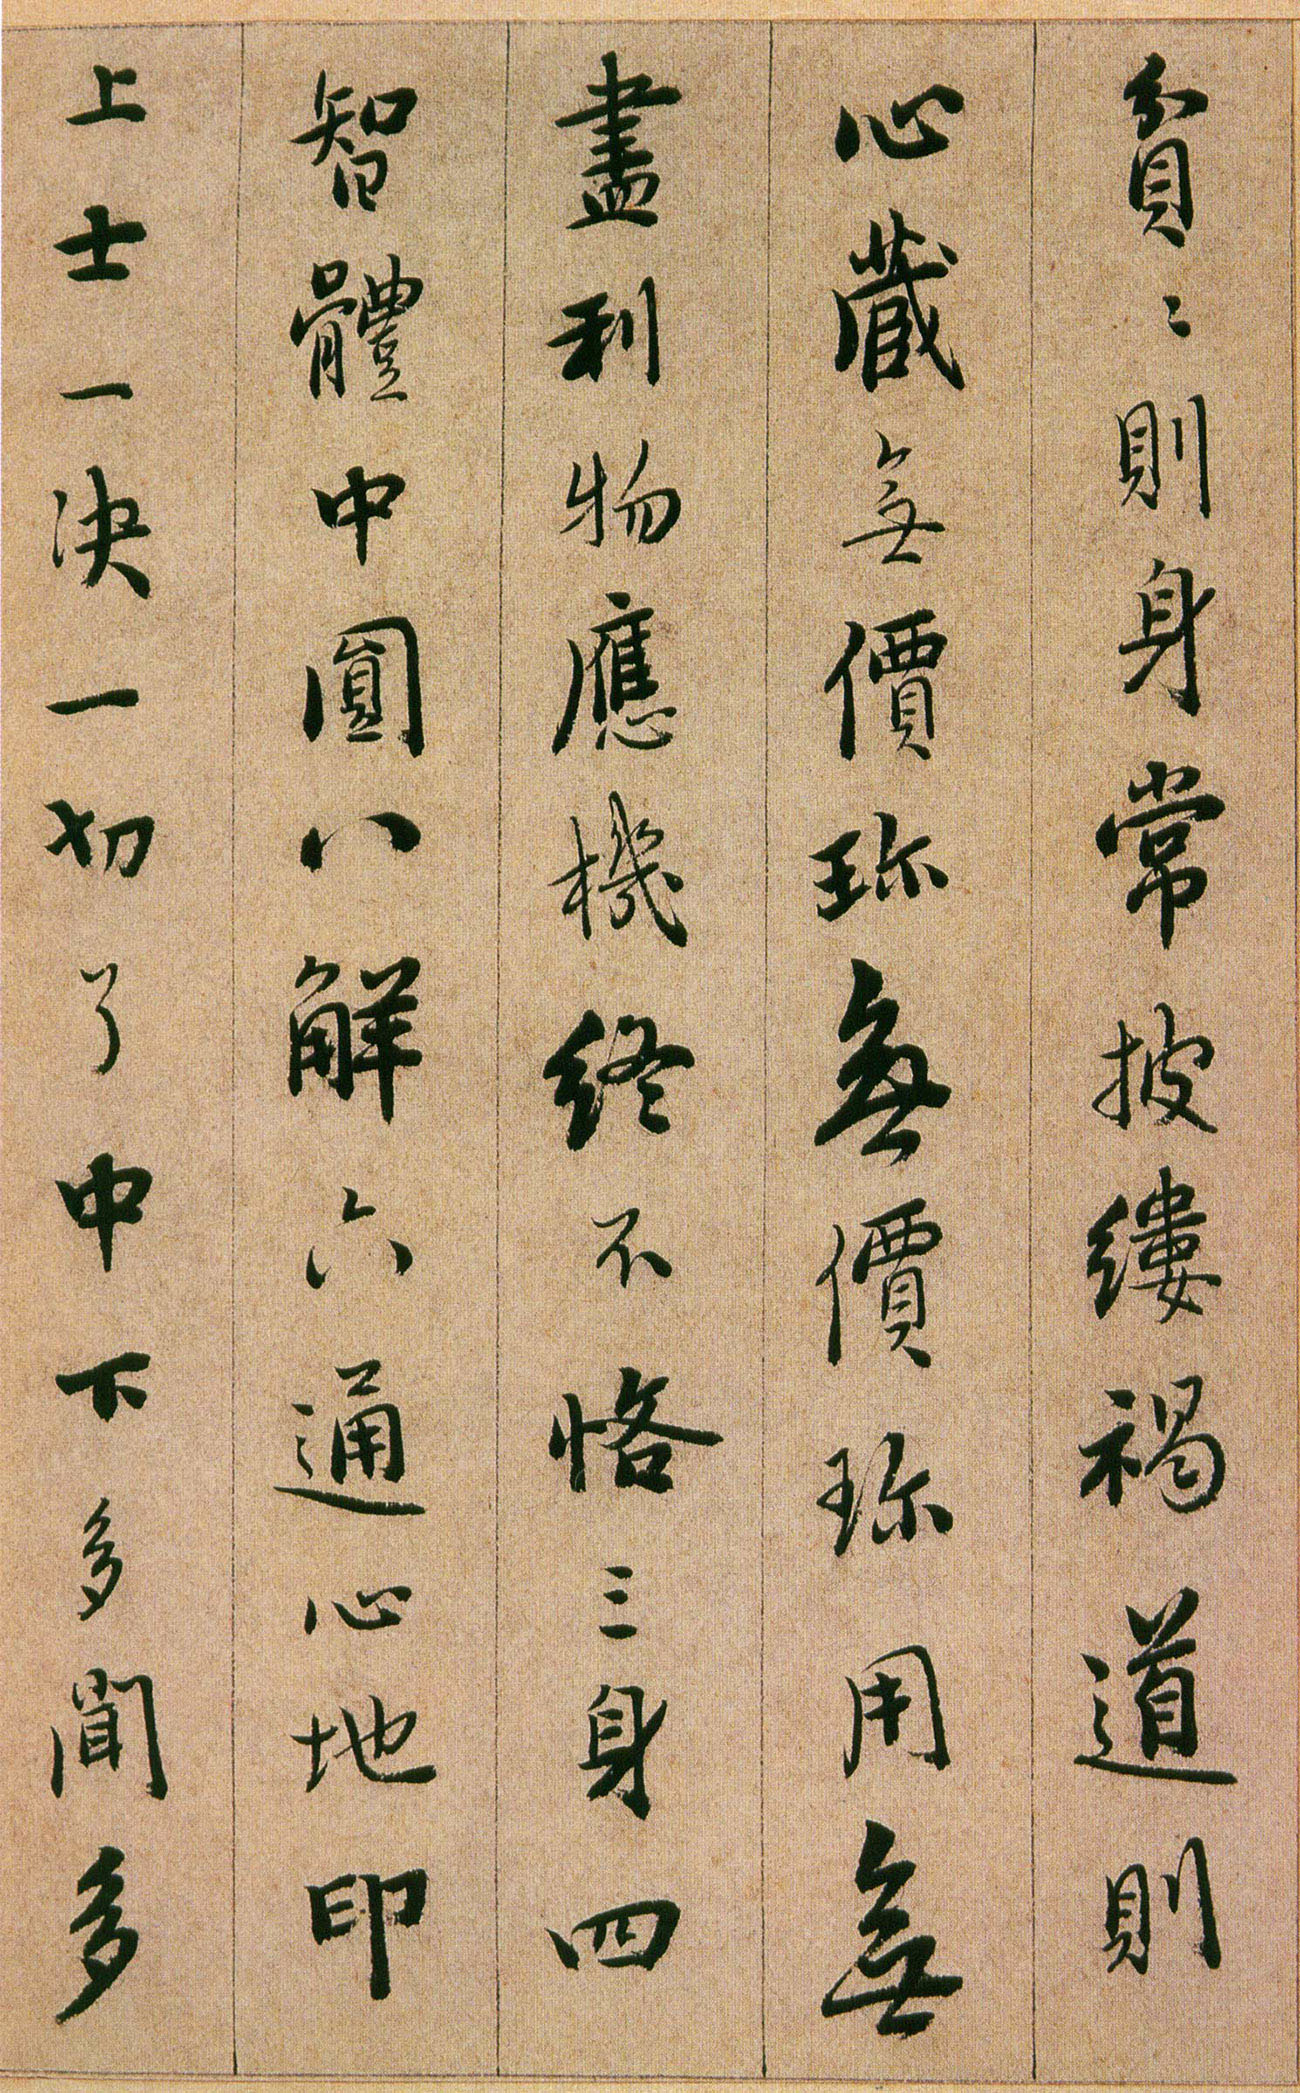 貧〻〻則身常披縷褐道則
心藏無價珎無價珎用無
盡利物應機終不恪三身四
智體中圓八解六通心地印
上士一决一切了中下多聞多